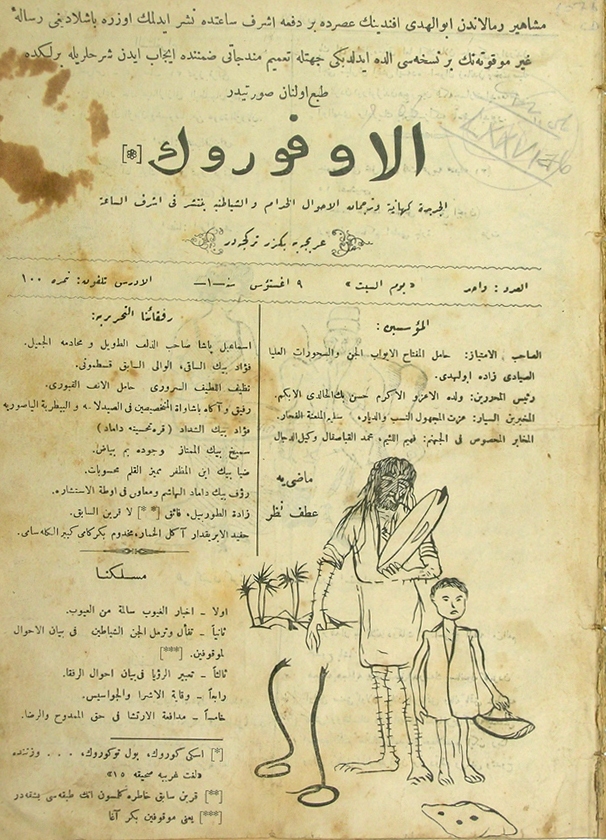 مشاهير ومالاندن ابوالهدى افندينك عصرده بر دفعه اشرف ساعتده نشر ايدلمك اوزره باشلاديغى رسالهٔ
غير موقوته نك بر نسخه سى الده ايدلديكى جهتله تعميم مندرجاتى ضمننده ايجاب ايدن شرحلريله برلكده
طبع اولنان صورتيدر
الاوفوروك [*]
الجريدة كهانية وترجمان الاحوال الخدام و الشياطنه ينتشر فى اشرف الساعة
عربجه يه بكزر تركجه در
العدد: واحد «يوم السبت» ٩ اغستوس سنه ـ١ـ الادرس تلفون: نمره ١٠٠
المؤسسين:
الصاحب الامتياز: حامل المفتاح الابواب الجن والسحورات العليا
الصيادى زاده ابوالهدى.
رئيس المحررين: ولده الاعز والاكرم حسن بك الخالدى الابكم.
المخبرين السيار: عزت المجهول النسب والديار،
المخابر المخصوص فى الجهنم: فهيم اللئيم، محمد القباصقال وكيل الدجال
ماضى يه
عطف نظر
رفقائنا التحريريه:
اسماعيل پاشا صاحب الذلف الطويل و مخادمه الجميل.
فؤاد بيك الساقى، الوالى السابق قسطمونى.
نظيف اللطيف السرورى حامل الانف القيورى.
رفيق و آكاه باشاواة المتخصصين فى الصيدلانيه و البيطرية الياصوريه
فؤاد بيك الشداد (قره تحسينه داماد)
سميح بيك الممتاز وجوده پم بياض.
ضيا بيك ابن المظفر مميز القلم محسوبات.
رؤف بيك داماد الهاشم ومعاون فى اوطة الاستشاره.
زادة الطوربيل، فائق [**] لا قرين السابق.
حفيد الابر بقدار آكل الخيار، مخدوم بكر كامى كبير الكله سامى.
مسلكنا
اولا ـ اخبار الغيوب سالمة من العيوب.
ثانياً ـ تفأل وترمل الجن الشياطين فى بيان الاحوال
لموقوفين. [***]
ثالثاً ـ تعبير الرؤيا فى بيان احوال الرفقا.
رابعاً ـ وقاية الاشرا والجواسيس.
خامساً ـ مدافعة الارتشا فى حق الممدوح والرضا.
[*] اسكى كوروك، پول توكوروك، . . . وزننده
«لغت غريبه صحيفه ١٥»
[**] قرين سابق خاطره كلسون انك طبقه سى بشقه در
[***] يعنى موقوفين بكر آغا